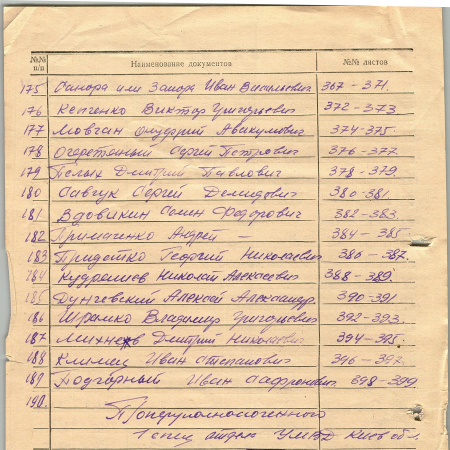 №№ п/п Наименование документов №№ листов
175 Самора или Замора Иван Васильевич 367 - 371.
176 Кепченко Виктор Григорьевич 372 - 373
177 Мовчан Андрей Авакумович 374 - 375.
178 Огоретанный Сергей Петрович 376 - 377.
179 Пелых Дмитрий Павлович 378 - 379.
180 Савчук Сергей Демидович 380 - 381.
181 Вдовикин Семен Федорович 382 - 383.
182 Примаченко Андрей — 384 - 385
183 Придетко Георгий Николаевич 386 - 387.
184 Кудралиев Николай Алексеевич 388 - 389.
185 Дунчевский Алексей Александр. 390 - 391
186 Шрамко Владимир Григорьевич 392 - 393.
187 Михнев Дмитрий Николаевич 394 - 395.
188 Климец Иван Степанович 396 - 397.
189 Подгорный Иван Сафронович 398 - 399
190.
1 спец отдел УМВД Киев обл.